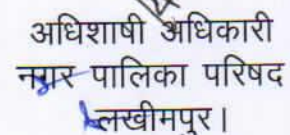 अधिशाषी अधिकारी
नगर पालिका परिषद
लखीमपुर।